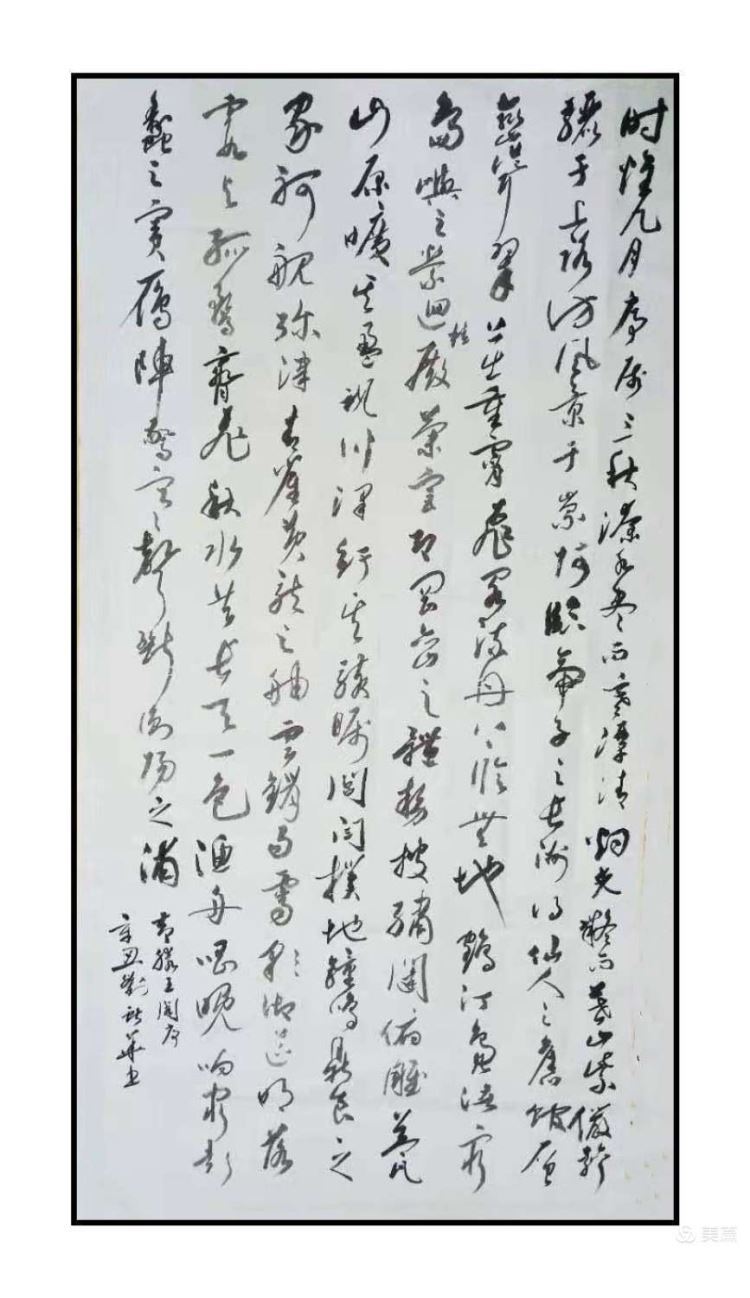 时维九月序属三秋潦水尽而寒潭清烟光凝而暮山紫俨骖
騑于上路访风景于崇阿临帝子之长洲得仙人之旧馆层
峦耸翠上出重霄飞阁流丹下临無地鹤汀凫渚穷
岛屿之萦迴桂殿兰宫即冈峦之體势披绣闼俯雕甍
山原旷其盈视川泽纡其骇瞩闾阎撲地鐘鸣鼎食之
家舸舰弥津青雀黄龙之舳雲销雨霁彩彻区明落
霞与孤鹜齐飞秋水共长天一色渔舟唱晚响穷彭
蠡之滨雁陣惊寒聲断衡阳之浦
书滕王阁序
辛丑刘华书
美篇